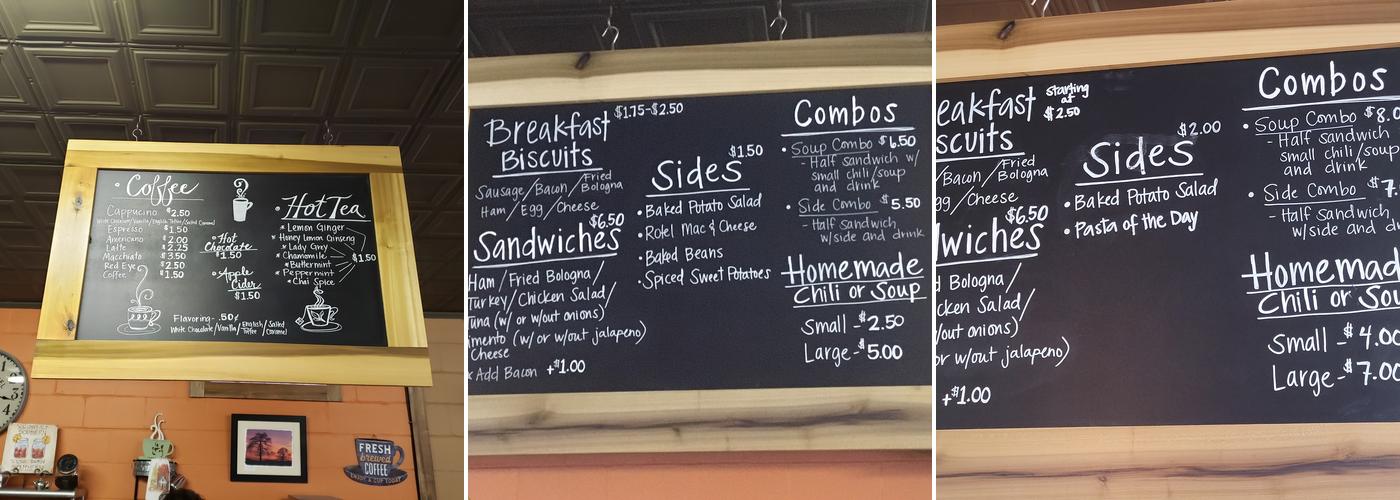 Coffee
Cappucino $2.50
White Chocolate/Vanilla/English Toffee/Salted Caramel
Espresso $1.50
Americano $2.00
Latte $2.25
Macchiato $3.50
Red Eye $2.50
Coffee $1.50
• Hot Chocolate
$1.50
• Apple Cider
$1.50
Hot Tea
* Lemon Ginger
* Honey Lemon Ginseng
* Lady Grey
* Chamomile
* Buttermint
* Peppermint
* Chai Spice
$1.50
Flavoring - .50¢
White Chocolate/Vanilla/English Toffee/Salted Caramel
FRESH
brewed
COFFEE
ENJOY A CUP TODAY
Breakfast $1.75-$2.50
Biscuits
Sausage/Bacon/Fried Bologna
Ham/Egg/Cheese
$6.50
Sandwiches
Ham/Fried Bologna/
Turkey/Chicken Salad/
Tuna (w/ or w/out onions)
imento (w/ or w/out jalapeno)
Cheese
* Add Bacon +$1.00
$1.50
Sides
• Baked Potato Salad
• Rotel Mac & Cheese
• Baked Beans
• Spiced Sweet Potatoes
Combos
• Soup Combo $6.50
- Half sandwich w/
small chili/soup
and drink
• Side Combo $5.50
- Half sandwich
w/side and drink
Homemade
Chili or Soup
Small - $2.50
Large - $5.00
eakfast starting at $2.50
scuits
Bacon/Fried Bologna
gg/Cheese
$6.50
wiches
d Bologna/
cken Salad/
/out onions)
or w/out jalapeno)
+$1.00
$2.00
Sides
• Baked Potato Salad
• Pasta of the Day
Combos
• Soup Combo $8.0
- Half sandwich
small chili/soup
and drink
• Side Combo $7.
- Half Sandwich
w/side and d
Homemad
Chili or Sou
Small - $4.00
Large - $7.00